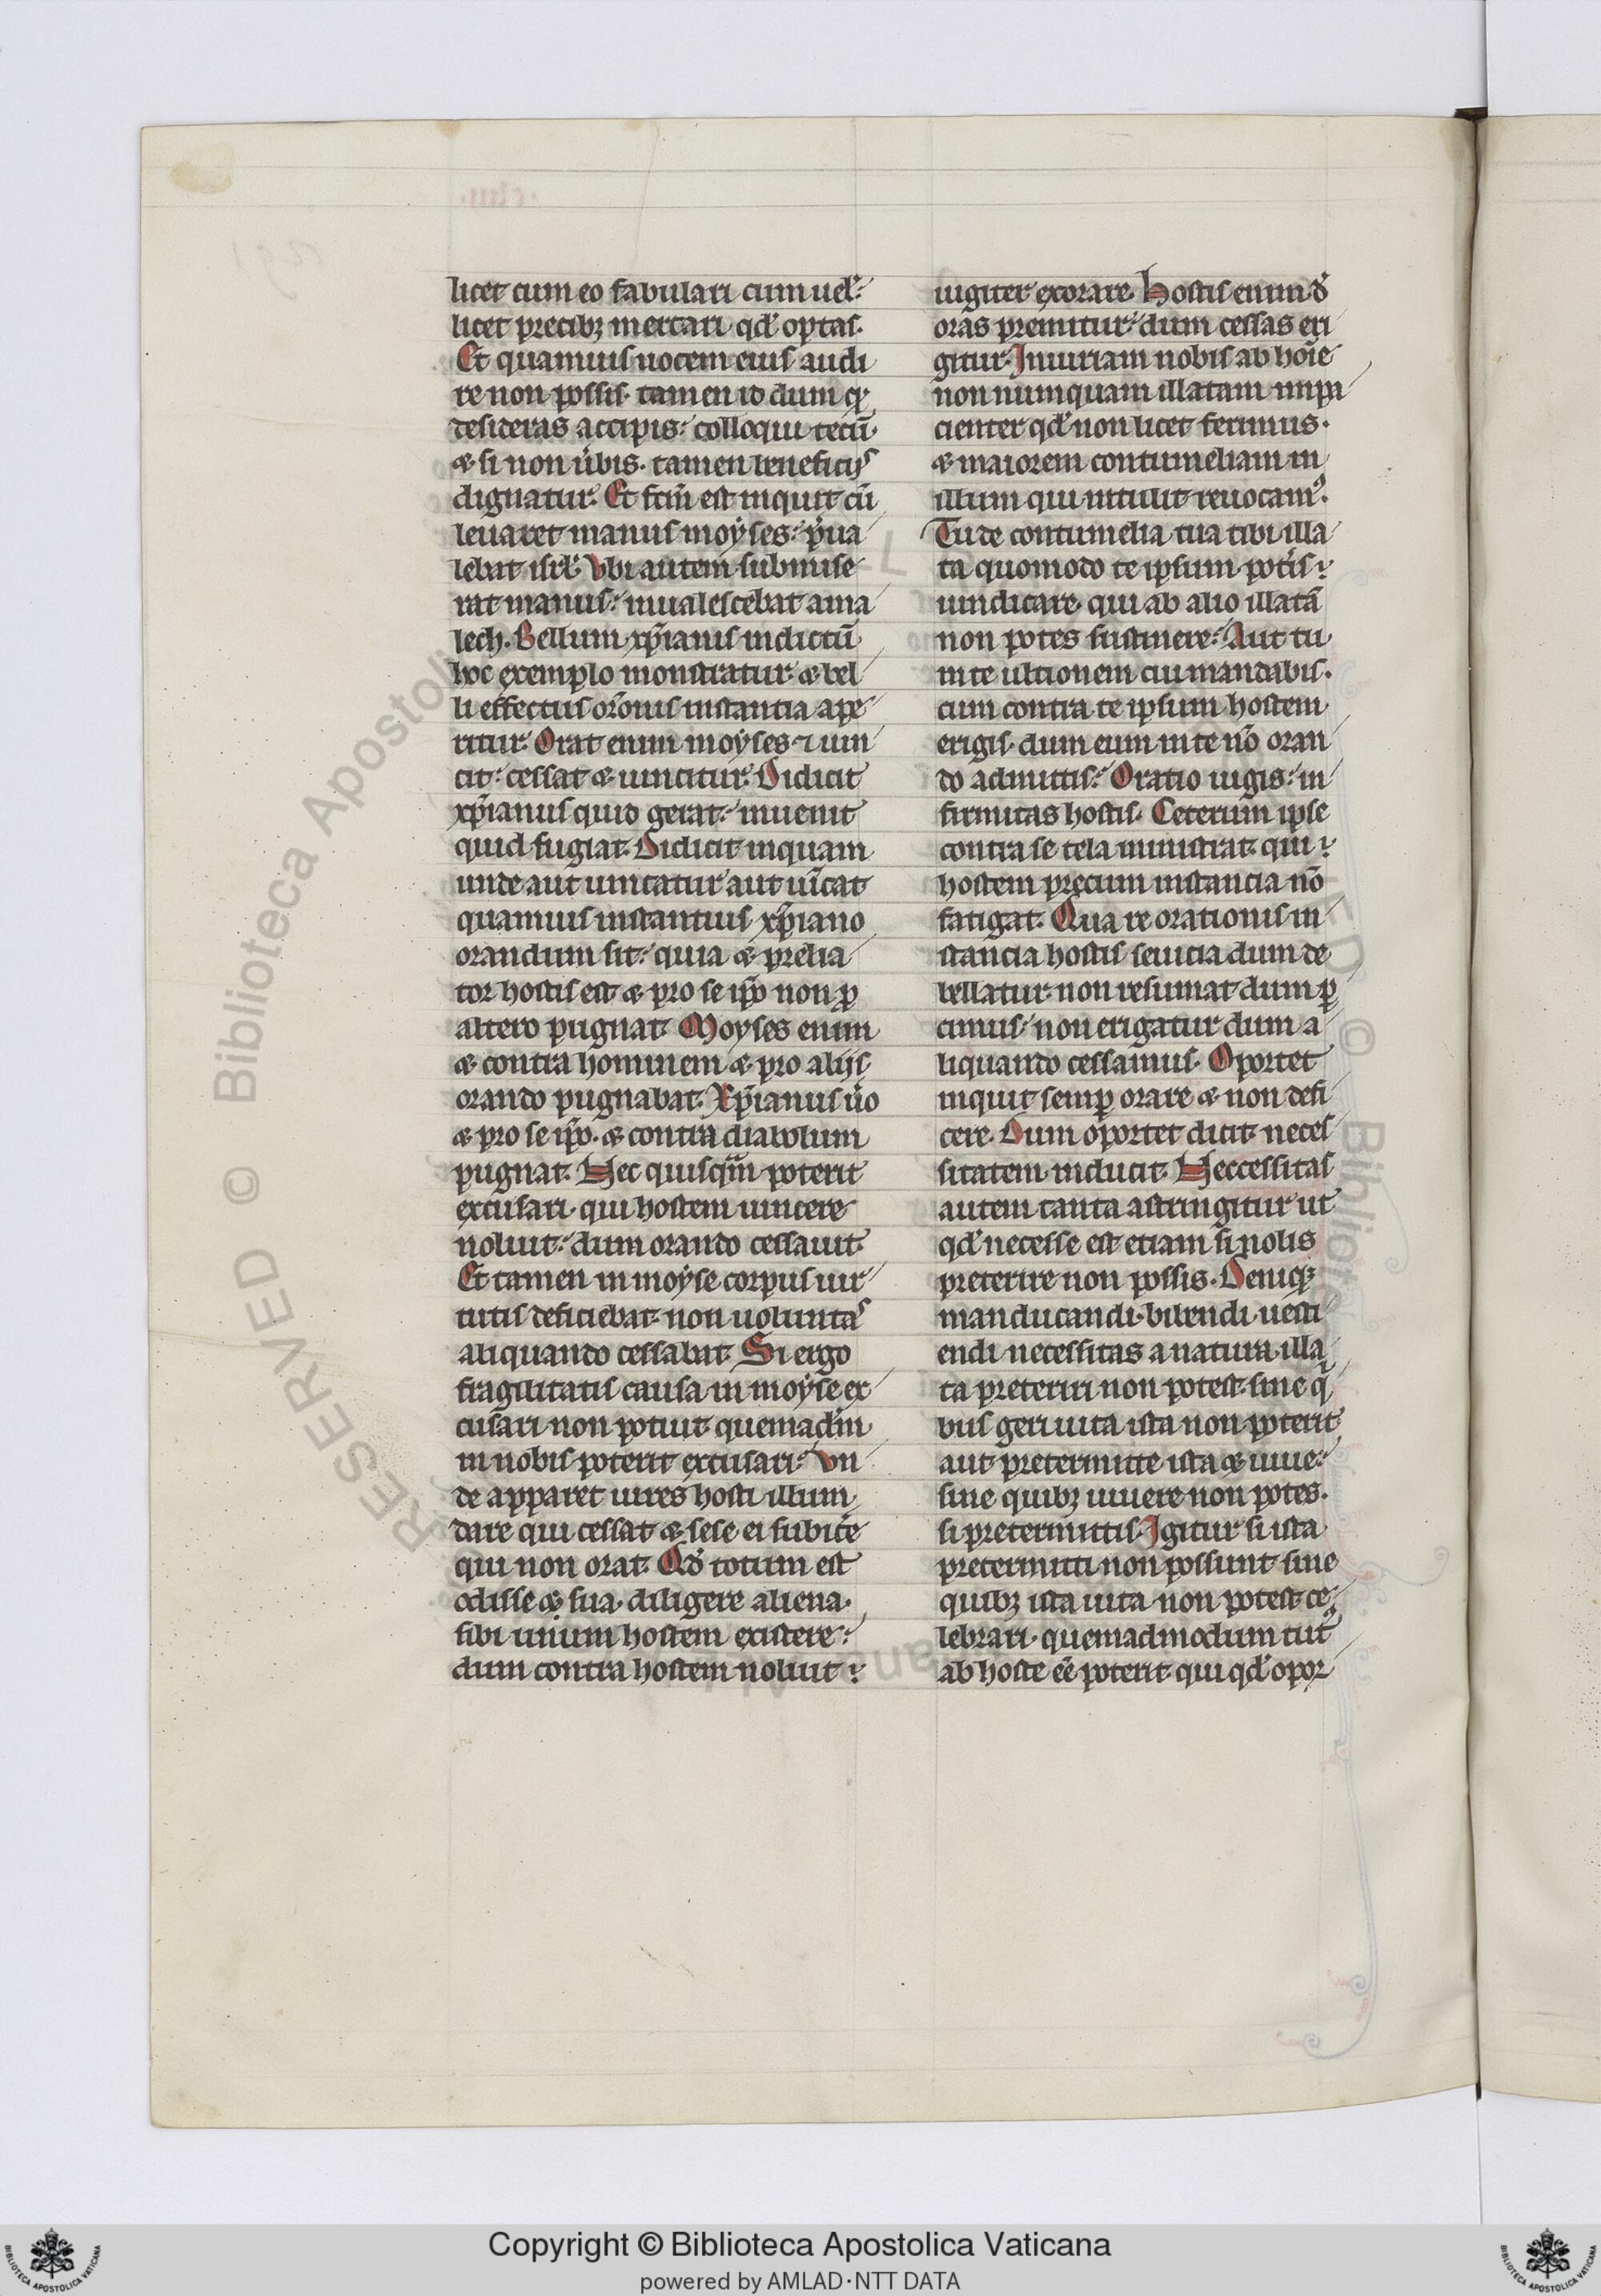 licet cum eo fabulari cum uel᷑:
licet precibꝫ mercari qđ optas.
Et quamuis uocem eius audi
re non possis. tamen id dum qđ
desideras accipis: colloqui tecū
& si non ūbis. tamen beneficijs
dignatur. Et fcm̄ est inquit cū
leuaret manus moyses: p̄ua
lebat isrl̄. Vbi autem submise
rat manus: inualescebat ama
lech. Bellum xp̄ianis indictū
hoc exemplo monstratur & bel
li effectus or̄onis instantia ape
ritur. Orat enim moyses ⁊ uin
cit: cessat & uincitur. Didicit
xp̄ianus quid gerat: inuenit
quid fugiat. Didicit inquam
unde aut uincatur aut uīcat
quamuis instantius xp̄iano
orandum sit: quia & prelia
tor hostis est & pro se ip̄o non ꝓ
altero pugnat. Moyses enim
& contra hominem & pro alijs
orando pugnabat. Xp̄ianus ūo
& pro se ip̄o. & contra diabolum
pugnat. Nec quisqm̄ poterit
excusari. qui hostem uincere
noluit: dum orando cessauit.
Et tamen in moyse corpus uir
tutis deficiebat. non uoluntas
aliquando cessabat. Si ergo
fragilitatis causa in moyse ex
cusari non potuit quemadm̄
in nobis poterit excusari: Vn
de apparet uires hosti illum
dare qui cessat & sese ei subicē
qui non orat. Qđ totum est
odisse & sua. diligere aliena.
sibi unum hostem existere:
dum contra hostem noluit
iugiter exorare. Hostis enim đ
oras premitur: dum cessas eri
gitur. Iniuriam nobis ab hoīe
non numquam illatam inpa
cienter qđ non licet ferimus.
& maiorem contumeliam in
illum qui intulit reuocamꝰ.
Tu de contumelia tua tibi illa
ta quomodo te ipsum pot̄is
uindicare. qui ab alio illatā
non potes sustinere: Aut tu
in te ultionem cui mandabis.
cum contra te ipsum hostem
erigis. dum eum in te nō oran
do admittis: Oratio iugis: in
firmitas hostis. Ceterum ipse
contra se tela ministrat. qui
hostem precium instancia nō
fatigat. Qua re orationis in
stancia hostis seuicia dum de
bellatur. non resumat dum ꝑ
cimus: non erigatur dum a
liquando cessamus. Oportet
inquit semꝑ orare & non defi
cere. Dum oportet dicit. neces
sitatem inducit. Neccessitas
autem tanta astringitur ut
qđ necesse est etiam si nolis
preterire non possis. Deniqꝫ
manducandi. bibendi. uesti
endi necessitas a natura illa
ta preteriri non potest. sine q̇
bus geri uita ista non poterit
aut pretermitte ista & uiue:
sine quibꝫ uiuere non potes.
si pretermittis. Igitur si ista
pretermitti non possunt sine
quibꝫ ista uita non potest ce
lebrari. quemadmodum tutꝰ
ab hoste eē poterit qui qđ opor
© Biblioteca Apostolica
RESERVED
© Bibliote
Copyright © Biblioteca Apostolica Vaticana
powered by AMLAD·NTT DATA
BIBLIOTECA APOSTOLICA VATICANA
BIBLIOTECA APOSTOLICA VATICANA